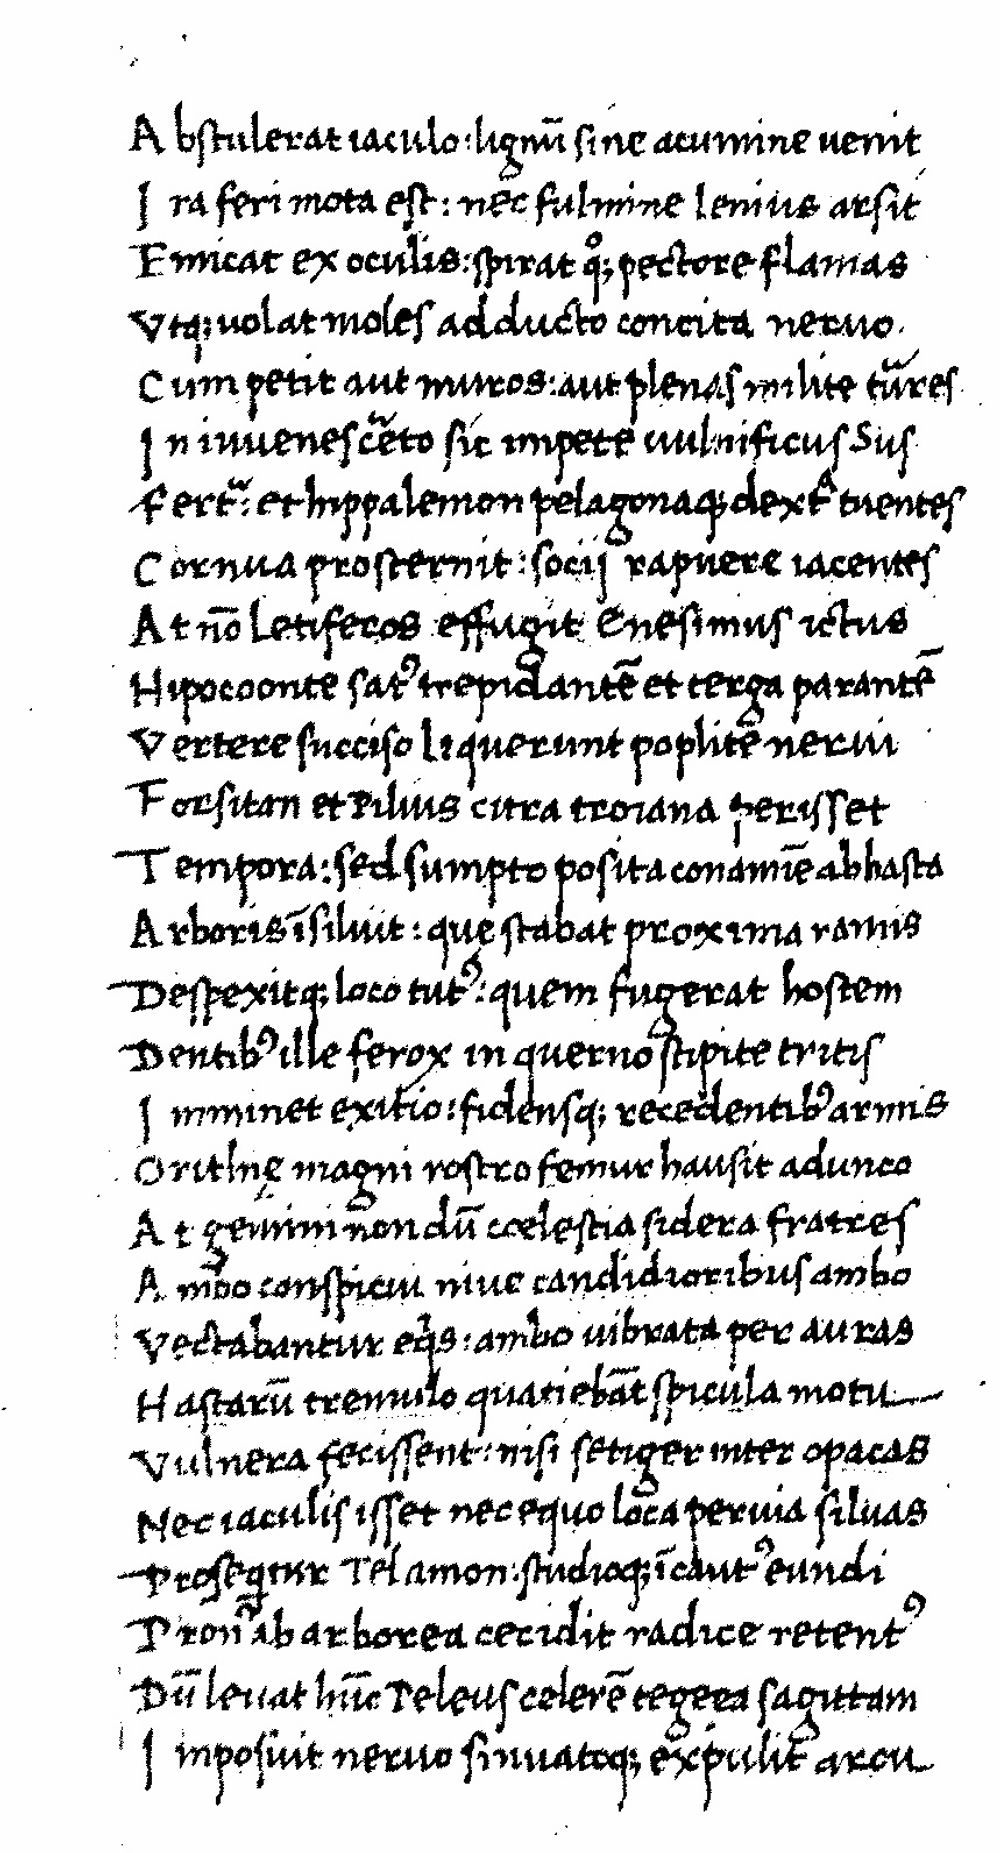 Abstulerat iaculo: lignū sine acumine venit
Ira feri mota est: nec fulmine lenius arsit
Emicat ex oculis: spirat qͦꝫ pectore flamas
Vtqꝫ uolat moles adducto concita neruo.
Cum petit aut muros: aut plenas milite turres
In iuuenes certo sic impete uulnificus Sus
Fertur: et hippalemon pelagonaqꝫ dextͣ tuentes
Cornua prosternit: socij rapuere iacentes
At nō Letiferos effugit Enesimus ictus
Hipocoonte satꝰ trepidantē et terga parantē
Vertere succiso Liquerunt poplite nerui
Forsitan et Pilius citra troiana perisset
Tempora: sed sumpto posita conamīe ab hasta
Arboris īsiluit: que stabat proxima ramis
Despexitqꝫ loco tutꝰ: quem fugerat hostem
Dentibꝰ ille ferox in querno stipite tritis
Imminet exitio: fidensqꝫ recedentibꝰ armis
Orithię magni rostro femur hausit adunco
At gemini nondū coelestia sidera fratres
Ambo conspicui niue candidioribus ambo
Vectabantur eqͥs: ambo uibrata per auras
Hastarū tremulo quatiebāt spicula motu
Vulnera fecissent: nisi setiger inter opacas
Nec iaculis isset nec equo loca peruia siluas
Proseqtur Telamon: studioqꝫ īcautꝰ eundi
Pronꝰ ab arborea cecidit radice retentꝰ
Dū leuat hūc Peleus celerē tegeea sagittam
Imposuit neruo sinuatoqꝫ expulit arcu